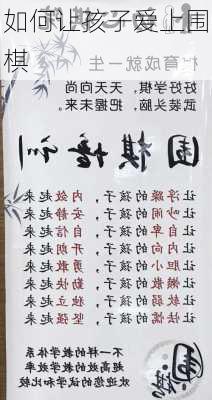 如何让孩子爱上围
棋
育成就一生
好好学棋,天天向上
武装头脑,把握未来.
围棋
让浮躁的孩子,内敛起来
让吵闹的孩子,安静起来
让自卑的孩子,自信起来
让内向的孩子,开朗起来
让胆小的孩子,勇敢起来
让懒散的孩子,勤快起来
让软弱的孩子,独立起来
让怯懦的孩子,坚强起来
不一样的教学体系
更高效的教学效率
欢迎您的试学和比较
围棋